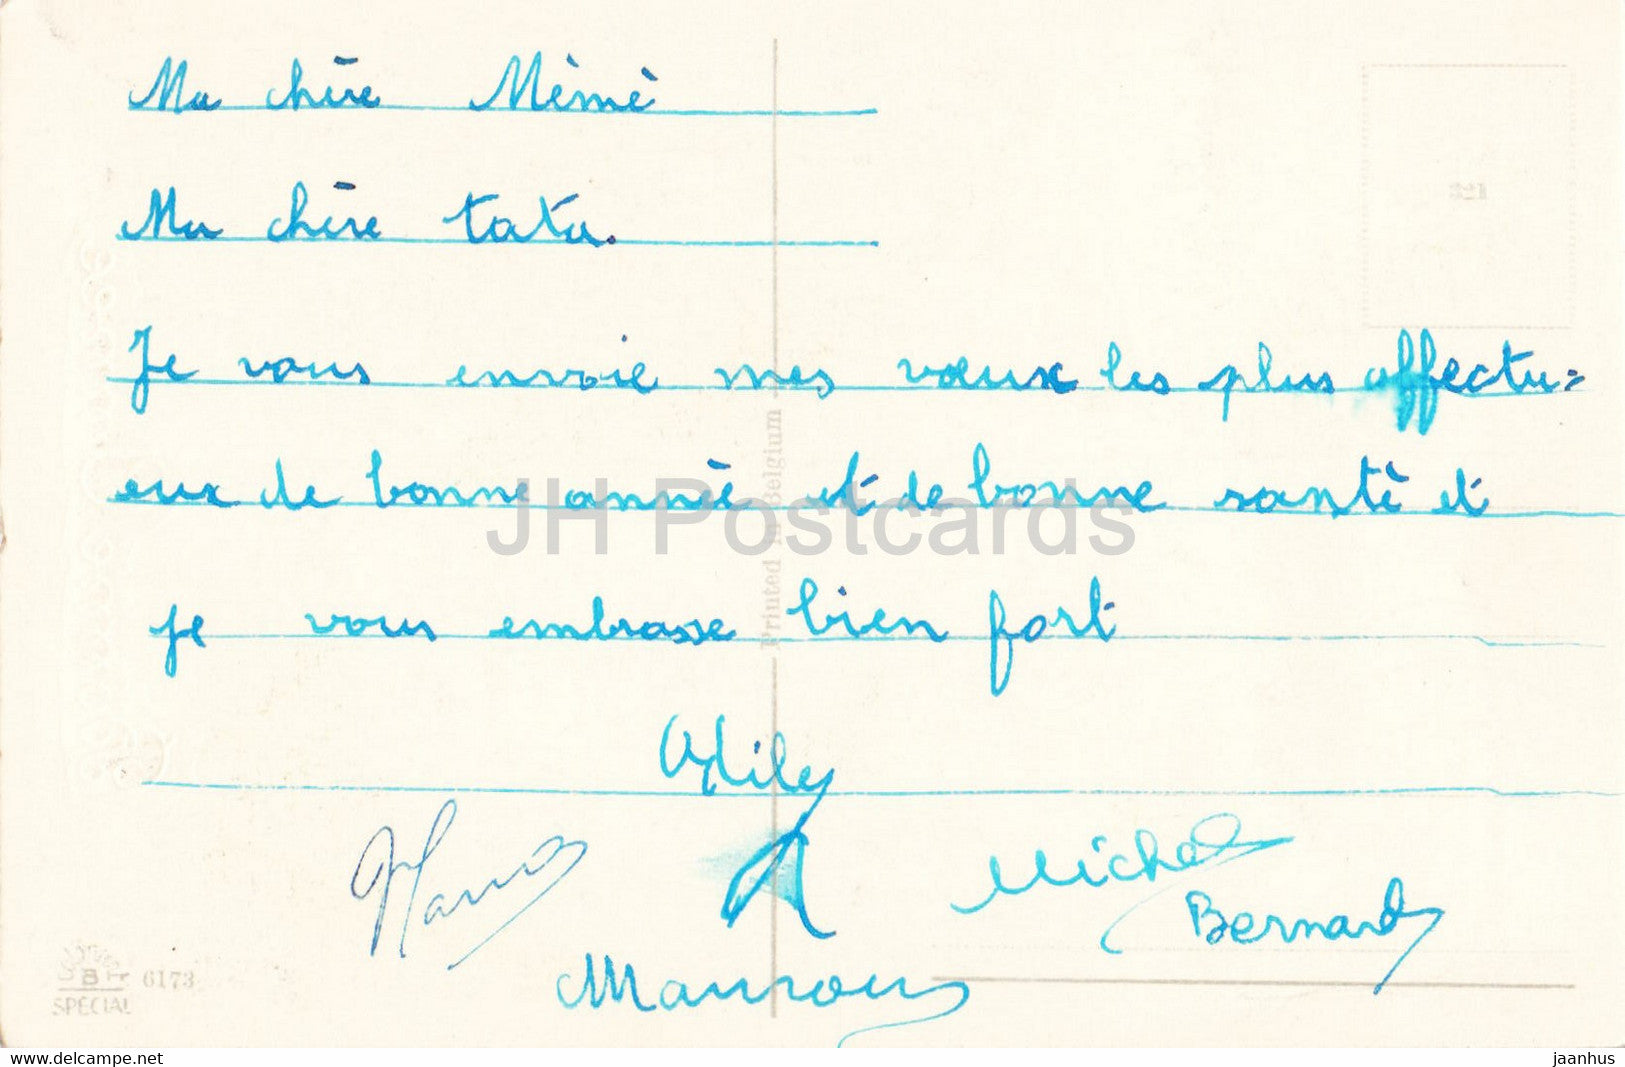 Ma chère Mémé
Ma chère tata.
Je vous envoie mes vœux les plus affectu=
eux de bonne année et de bonne santé et
je vous embrasse bien fort
Odile
Michel
Bernard
JH Postcards
Printed in Belgium
B
6173
SPECIAL
www.delcampe.net
jaanhus